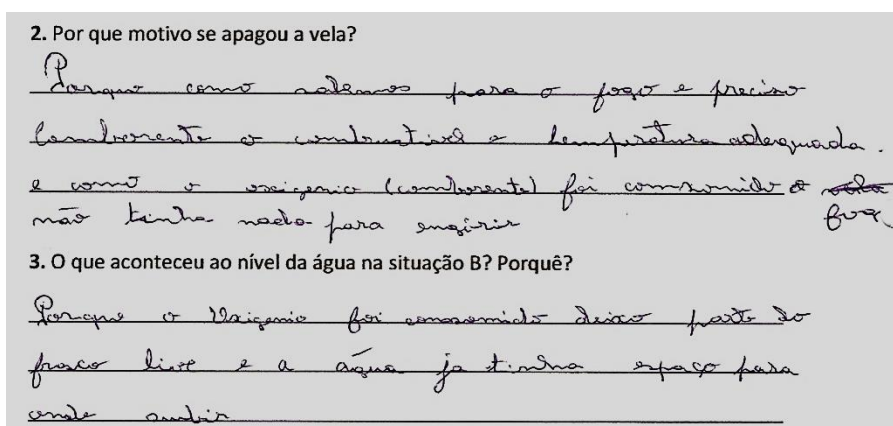 2. Por que motivo se apagou a vela?
Porque como sabemos para o fogo e preciso
Comburente o combustivel e temperatura adequada.
e como o oxigenio (comburente) foi comsumido o
não tinha nada para engirir fogo
3. O que aconteceu ao nível da água na situação B? Porquê?
Porque o Oxigenio foi consomido deixo parte do
frasco livre e a água ja tinha espaço para
onde subir